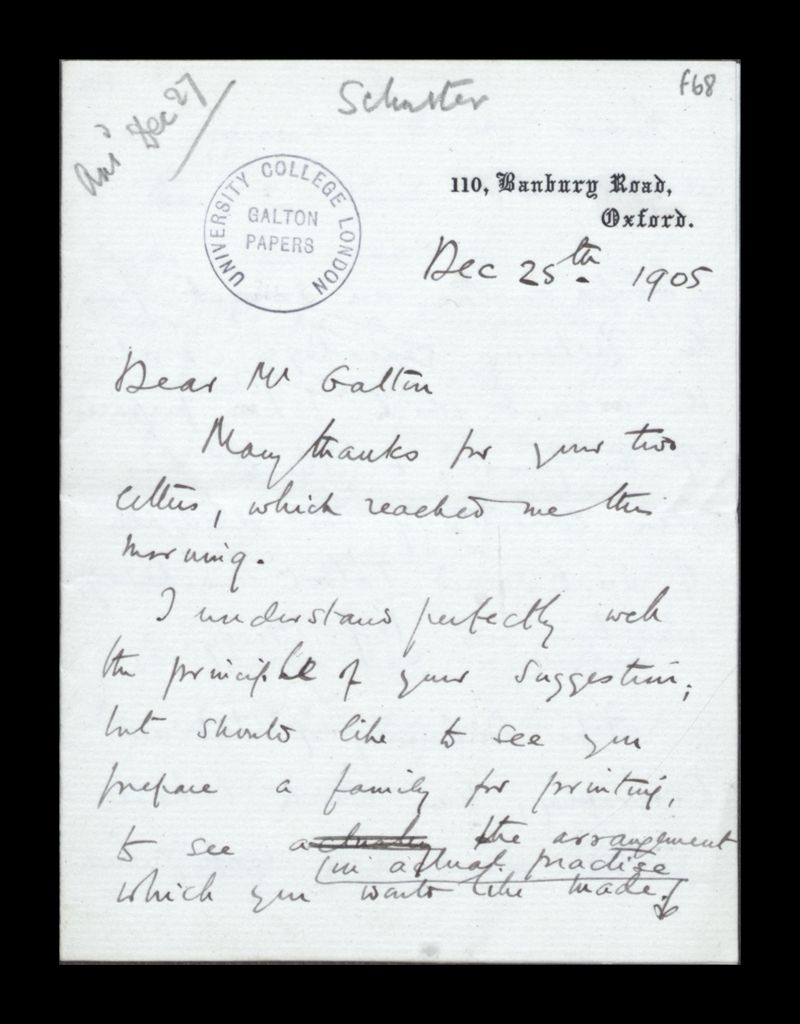 Ans'd Dec 27
Schuster
f68
UNIVERSITY COLLEGE LONDON
GALTON
PAPERS
110, Banbury Road,
Oxford.
Dec 25th. 1905
Dear Mr Galton
Many thanks for your two
letters, which reached me this
morning.
I understand perfectly well
the principle of your suggestion;
but should like to see you
prepare a family for printing,
to see actually the arrangement
in actual practise
which you would like made.